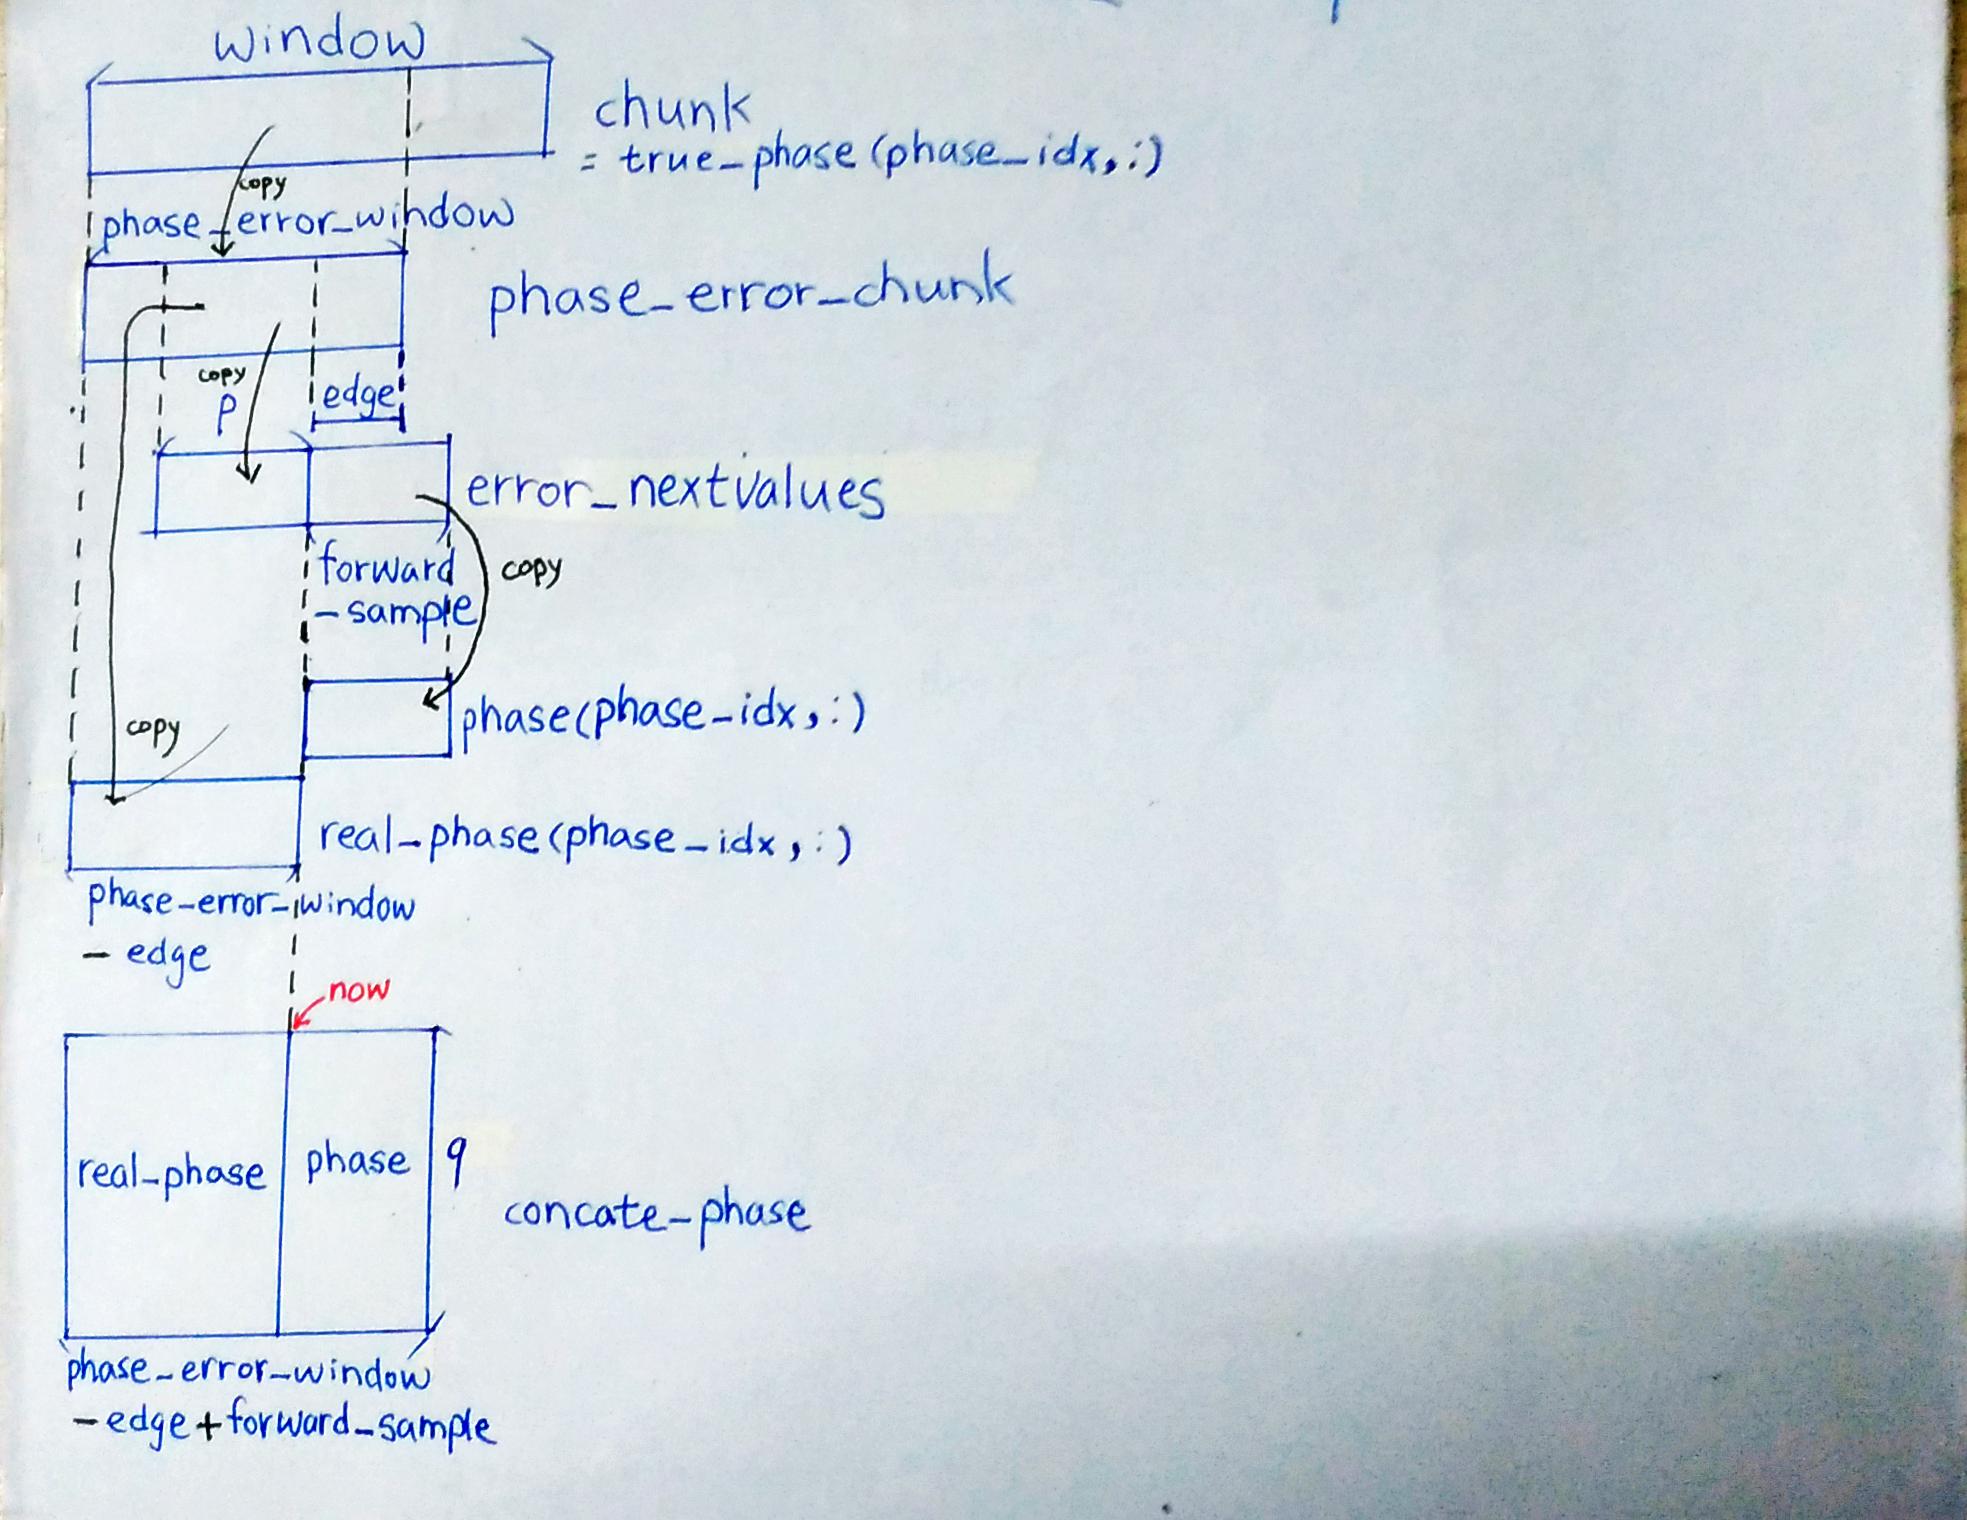 window
chunk
= true_phase(phase_idx,:)
copy
phase_error_window
phase_error_chunk
copy
p
edge
error_nextvalues
forward
_sample
copy
phase(phase_idx,:)
copy
real_phase(phase_idx,:)
phase_error_window
- edge
now
real_phase
phase
9
concate_phase
phase_error_window
-edge+forward_sample